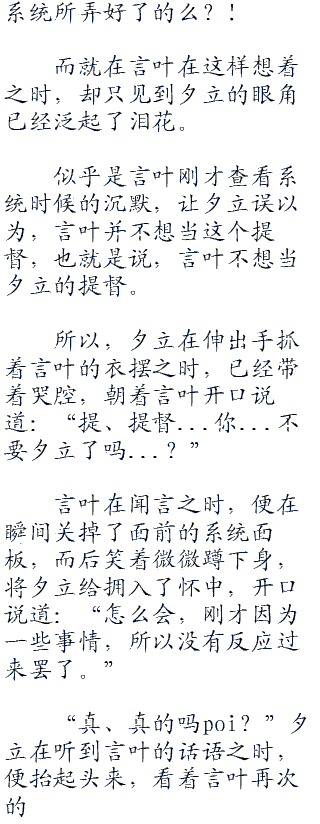 系统所弄好了的么？！
而就在言叶在这样想着
之时，却只见到夕立的眼角
已经泛起了泪花。
似乎是言叶刚才查看系
统时候的沉默，让夕立误以
为，言叶并不想当这个提
督，也就是说，言叶不想当
夕立的提督。
所以，夕立在伸出手抓
着言叶的衣摆之时，已经带
着哭腔，朝着言叶开口说
道：“提、提督...你...不
要夕立了吗...？”
言叶在闻言之时，便在
瞬间关掉了面前的系统面
板，而后笑着微微蹲下身，
将夕立给拥入了怀中，开口
说道：“怎么会，刚才因为
一些事情，所以没有反应过
来罢了。”
“真、真的吗poi？”夕
立在听到言叶的话语之时，
便抬起头来，看着言叶再次
的